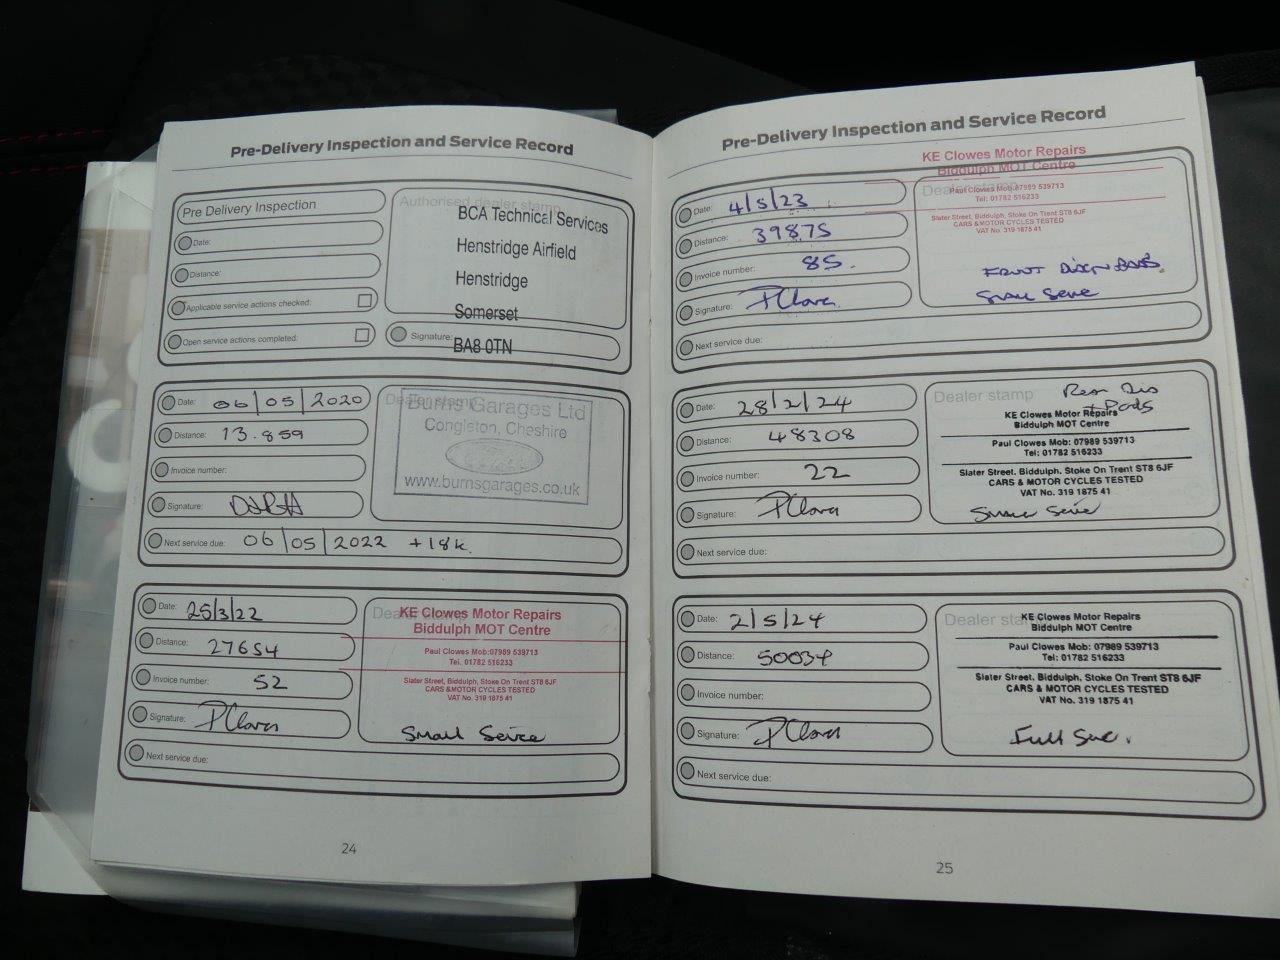 Pre-Delivery Inspection and Service Record
Pre Delivery Inspection
Date:
Distance:
Applicable service actions checked:
Open service actions completed:
Authorised dealer stamp
BCA Technical Services
Henstridge Airfield
Henstridge
Somerset
BA8 0TN
Signature:
Date: 06/05/2020
Distance: 13.859
Invoice number:
Signature:
Next service due: 06/05/2022 +18k.
Dealer stamp
Burns Garages Ltd
Congleton, Cheshire
www.burnsgarages.co.uk
Date: 25/3/22
Distance: 27654
Invoice number: 52
Signature: PClowes
Next service due:
KE Clowes Motor Repairs
Biddulph MOT Centre
Paul Clowes Mob:07989 539713
Tel. 01782 516233
Slater Street, Biddulph, Stoke On Trent ST8 6JF
CARS & MOTOR CYCLES TESTED
VAT No. 319 1875 41
Small Service
24
Pre-Delivery Inspection and Service Record
Date: 4/5/23
Distance: 39875
Invoice number: 85.
Signature: PClowes
Next service due:
KE Clowes Motor Repairs
Biddulph MOT Centre
Dealer stamp
Paul Clowes Mob:07989 539713
Tel: 01782 516233
Slater Street, Biddulph, Stoke On Trent ST8 6JF
CARS & MOTOR CYCLES TESTED
VAT No. 319 1875 41
Front Disc + Pads.
Small Service
Date: 28/2/24
Distance: 48308
Invoice number: 22
Signature: PClowes
Next service due:
Dealer stamp
Rear Dis
+ Pads
KE Clowes Motor Repairs
Biddulph MOT Centre
Paul Clowes Mob: 07989 539713
Tel: 01782 516233
Slater Street, Biddulph, Stoke On Trent ST8 6JF
CARS & MOTOR CYCLES TESTED
VAT No. 319 1875 41
Small Service
Date: 2/5/24
Distance: 50034
Invoice number:
Signature: PClowes
Next service due:
Dealer stamp
KE Clowes Motor Repairs
Biddulph MOT Centre
Paul Clowes Mob: 07989 539713
Tel: 01782 516233
Slater Street, Biddulph, Stoke On Trent ST8 6JF
CARS & MOTOR CYCLES TESTED
VAT No. 319 1875 41
Full Serv.
25